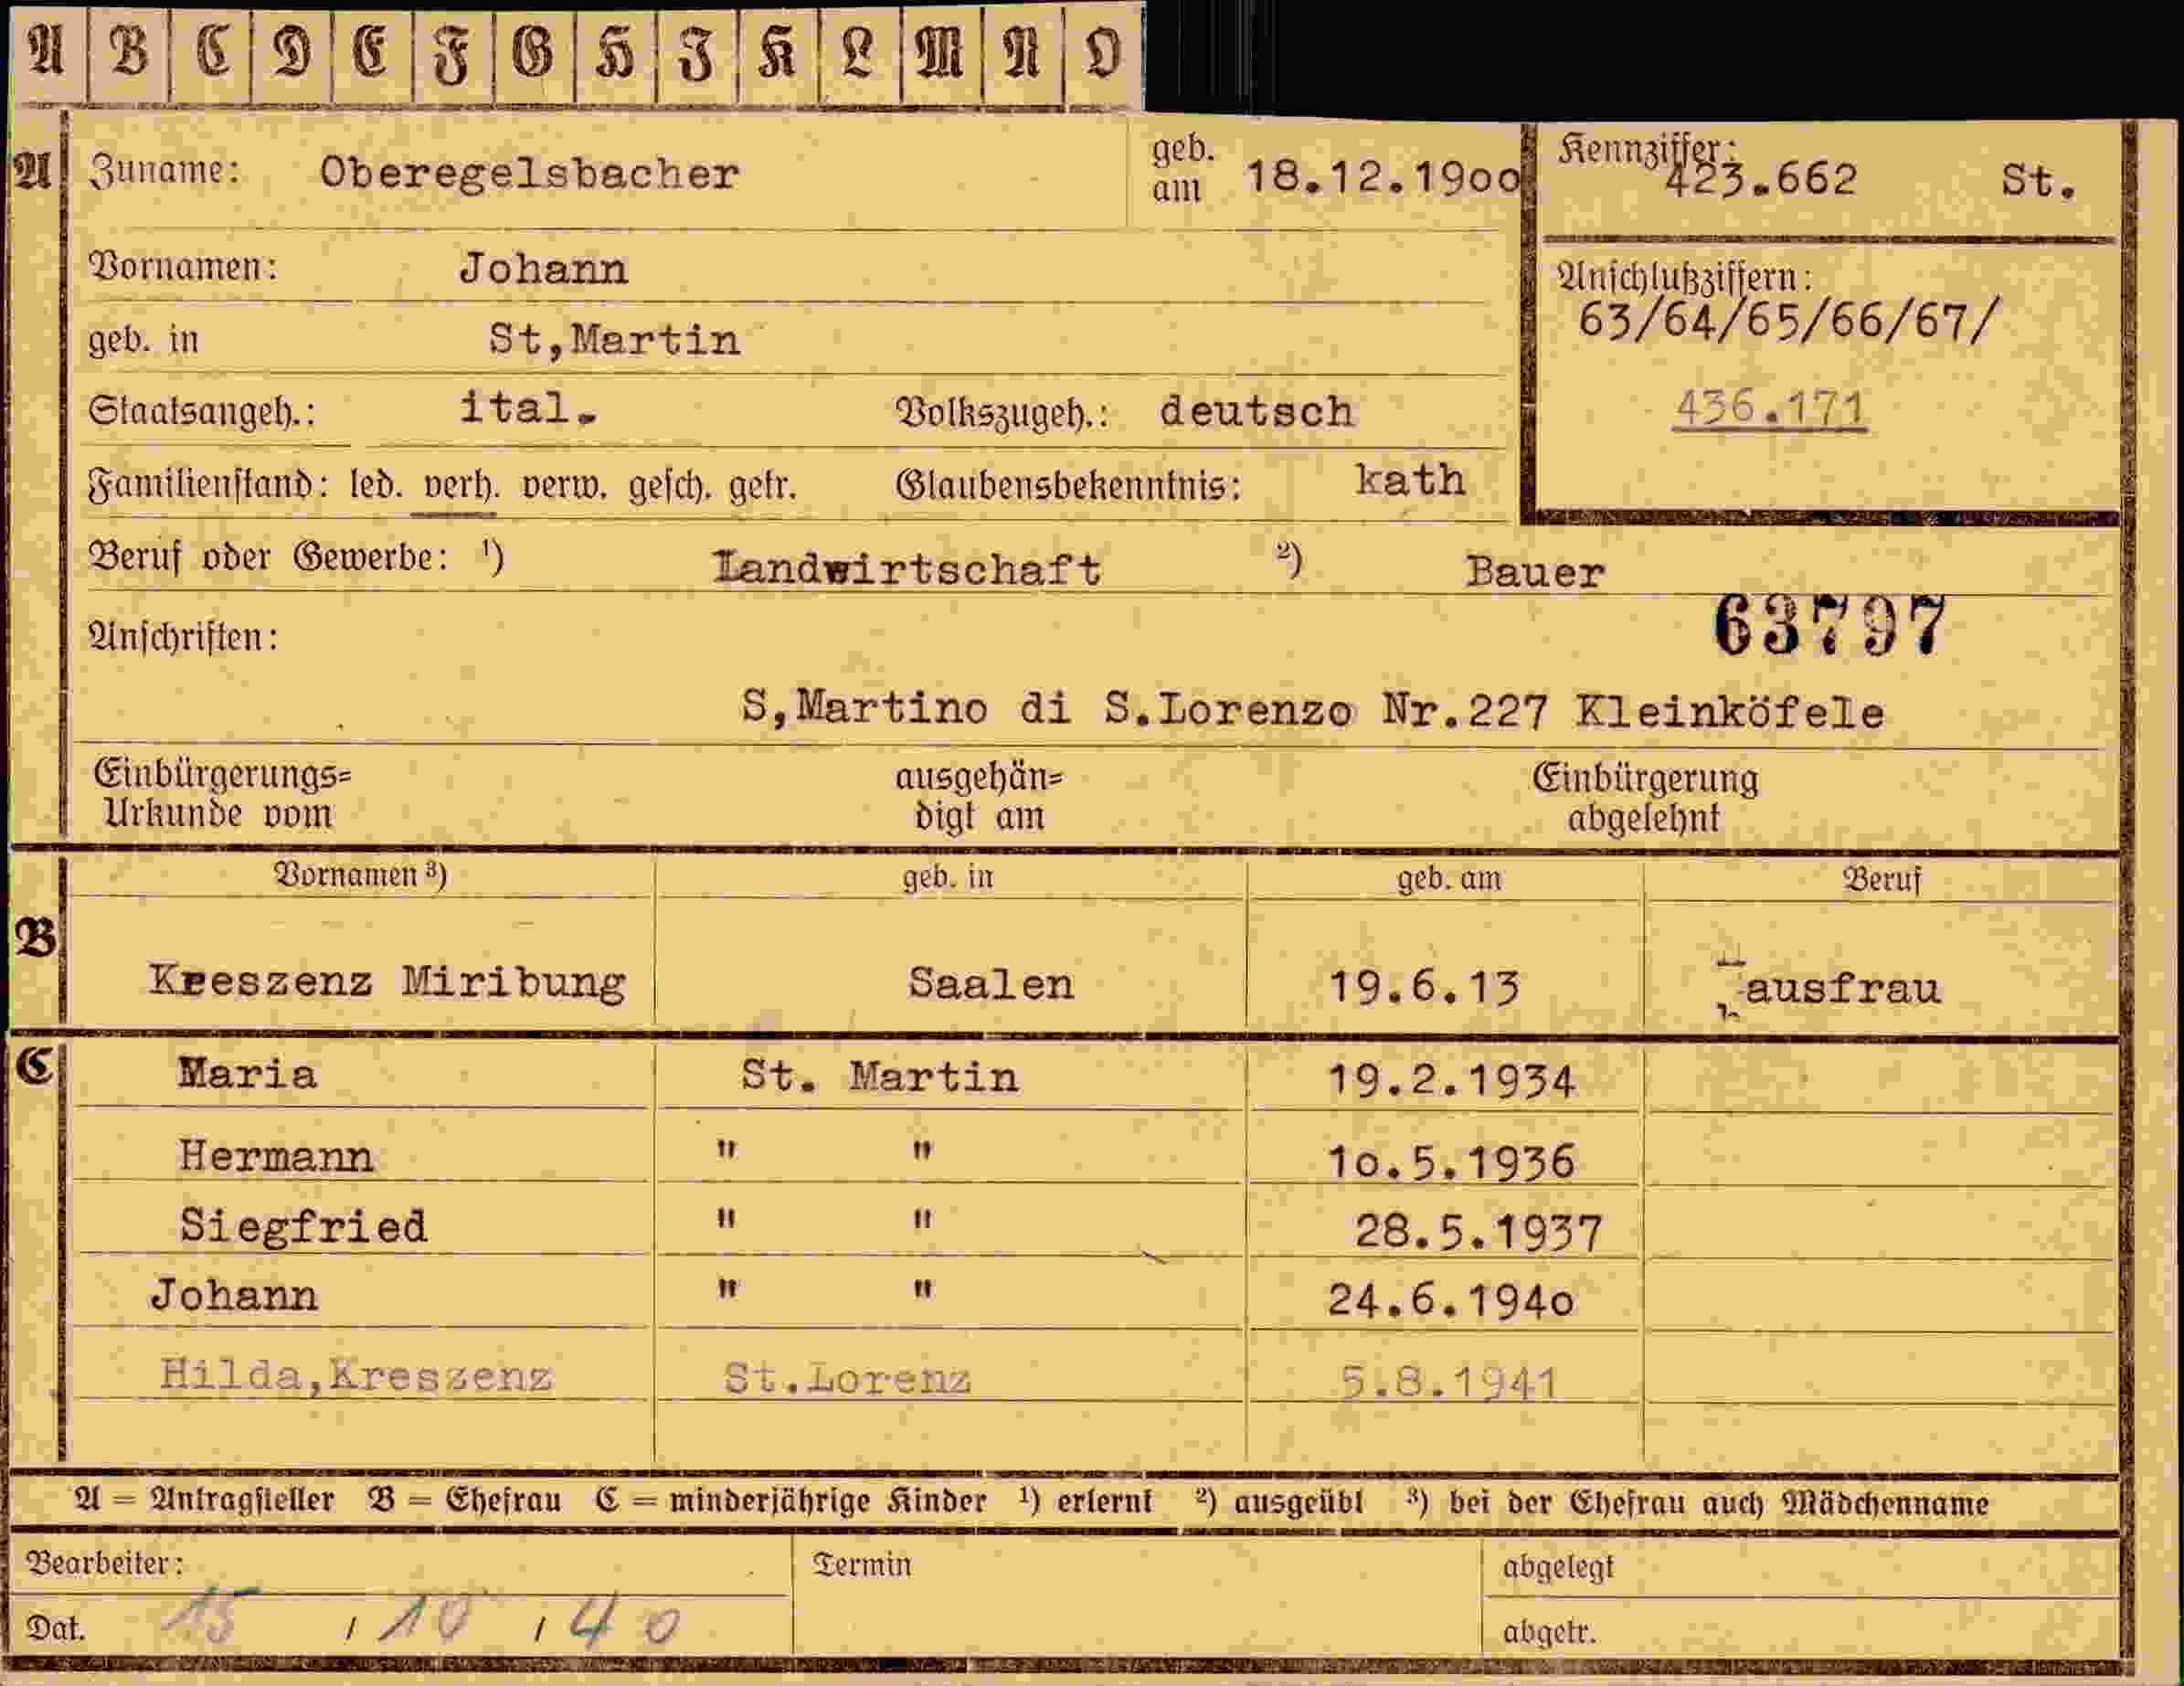 A B C D E F G H I K L M N O
A Zuname: Oberegelsbacher geb. am 18.12.19oo Kennziffer: 423.662 St.
Vornamen: Johann Anschlußziffern:
63/64/65/66/67/
geb. in St,Martin
Staatsangeh.: ital. Volkszugeh.: deutsch 436.171
Familienstand: led. verh. verw. gesch. getr. Glaubensbekenntnis: kath
Beruf oder Gewerbe: ¹) Landwirtschaft ²) Bauer
Anschriften: 63797
S,Martino di S.Lorenzo Nr.227 Kleinköfele
Einbürgerungs= ausgehän= Einbürgerung
Urkunde vom digt am abgelehnt
Vornamen ³) geb. in geb. am Beruf
B
Kreszenz Miribung Saalen 19.6.13 Hausfrau
C Maria St. Martin 19.2.1934
Hermann " " 1o.5.1936
Siegfried " " 28.5.1937
Johann " " 24.6.194o
Hilda,Kreszenz St.Lorenz 5.8.1941
A = Antragsteller B = Ehefrau C = minderjährige Kinder ¹) erlernt ²) ausgeübt ³) bei der Ehefrau auch Mädchenname
Bearbeiter: Termin abgelegt
Dat. 15 / 10 / 40 abgetr.